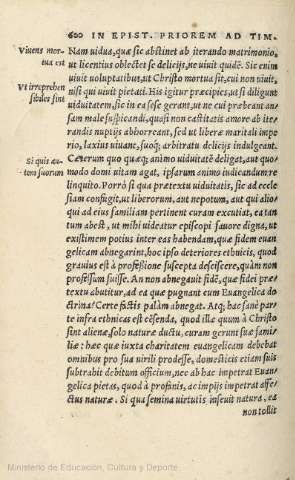 600 IN EPIST. PRIOREM AD TIM.
Vivens mor-
tua est
Nam uidua, quæ sic abstinet ab iterando matrimonio,
ut licentius oblectet se delicijs, ne uiuit quidẽ. Sic enim
uiuit uoluptatibus, ut Christo mortua sit, cui non uiuit,
Vt irreprehen
sibiles sint
nisi qui uiuit pietati. His igitur præcipies, ut si diligunt
uiduitatem, sic in ea sese gerant, ut ne cui præbeant an-
sam male suspicandi, quasi non castitatis amore ab ite-
randis nuptijs abhorreant, sed ut liberæ maritali impe-
rio, laxius uiuant, suoq; arbitratu delicijs indulgeant.
Si quis au-
tem suorum
Cæterum quo quæq; animo uiduitatẽ deligat, aut quo-
modo domi uitam agat, ipsarum animo iudicandum re
linquito. Porrò si qua prætextu uiduitatis, sic ad eccle-
siam confugit, ut liberorum, aut nepotum, aut qui alio
qui ad eius familiam pertinent curam exciat, ea tan-
tum abest, ut mihi uideatur episcopi fauore digna, ut
existimem potius inter eas habendam, quæ fidem euan
gelicam abnegarint, hoc ipso deteriores ethnicis, quod
grauius est à professione suscepta desciscere, quàm non
professum fuisse. An non abnegauit fidẽ, quæ fidei præ-
textu abutitur, ad ea quæ pugnant cum Euangelica do
ctrina? Certe factis palàm abnegat. Atq; hac sanè par-
te infra ethnicas est cẽsenda, quod illæ quum à Christo
sint alienæ, solo naturæ ductu, curam gerunt suæ fami-
liæ: hæc quæ iuxta charitatem euangelicam debebat
omnibus pro sua uirili prodesse, domesticis etiam suis
subtrahit debitum officium, nec ab hac impetrat Euan-
gelica pietas, quod à profanis, ac impijs impetrat affe-
ctus naturæ. Si qua semina uirtutis inseuit natura, ea
non tollit
Ministerio de Educación, Cultura y Deporte